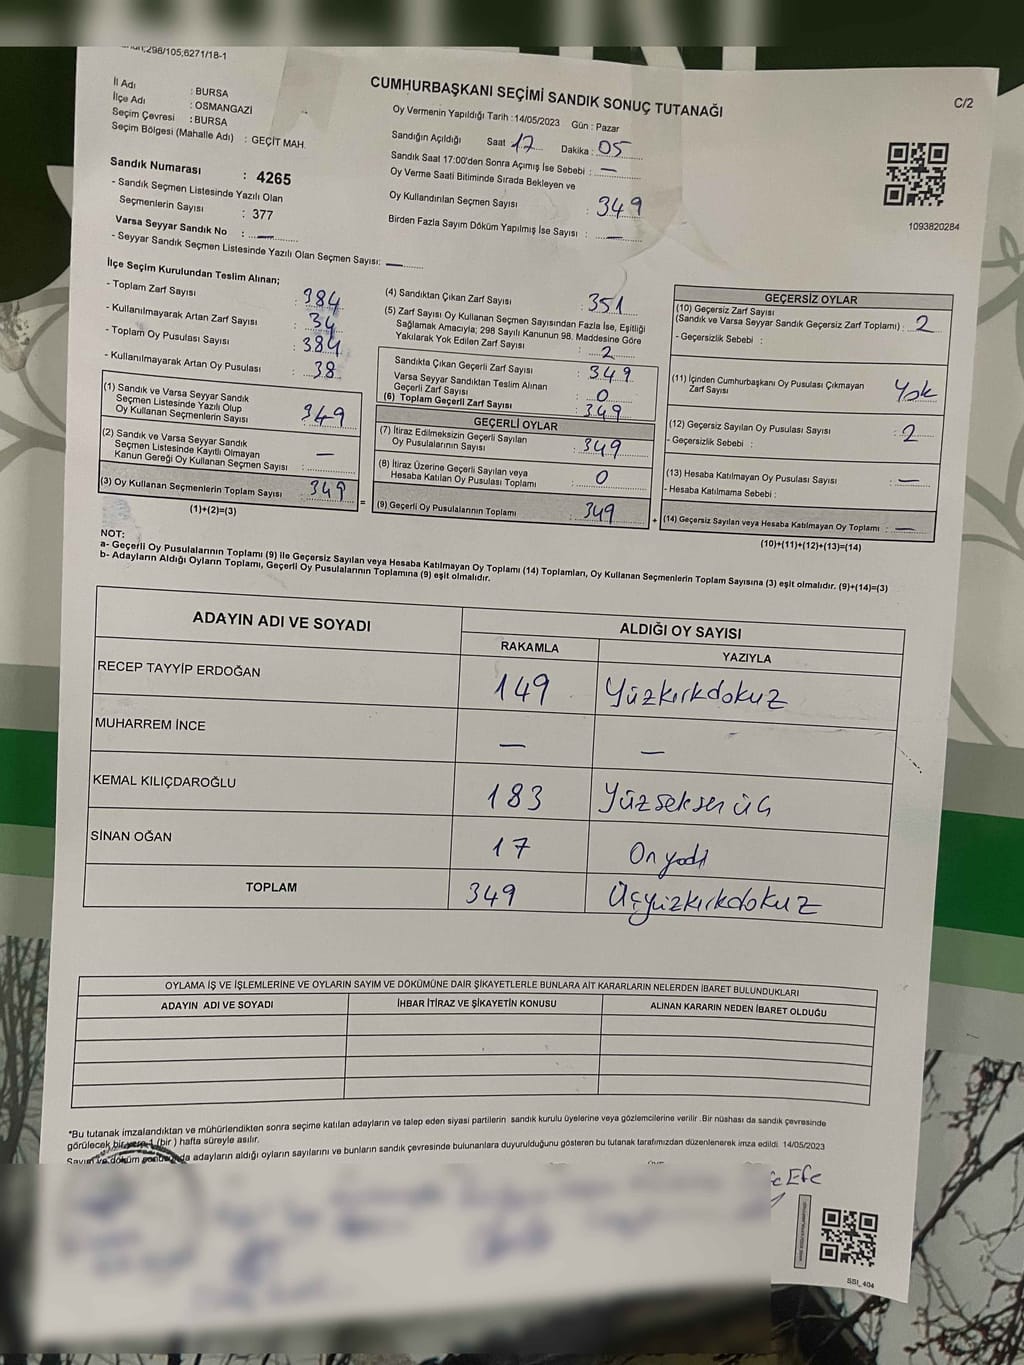 298/105;6271/18-1
CUMHURBAŞKANI SEÇİMİ SANDIK SONUÇ TUTANAĞI
C/2
İl Adı : BURSA
İlçe Adı : OSMANGAZİ
Seçim Çevresi : BURSA
Seçim Bölgesi (Mahalle Adı) : GEÇİT MAH.
Oy Vermenin Yapıldığı Tarih :14/05/2023 Gün : Pazar
Sandığın Açıldığı Saat 17 Dakika : 05
Sandık Saat 17:00'den Sonra Açımış İse Sebebi : —
Oy Verme Saati Bitiminde Sırada Bekleyen ve
Oy Kullandırılan Seçmen Sayısı : 349
Birden Fazla Sayım Döküm Yapılmış İse Sayısı : —
1093820284
Sandık Numarası : 4265
- Sandık Seçmen Listesinde Yazılı Olan
Seçmenlerin Sayısı : 377
Varsa Seyyar Sandık No : —
- Seyyar Sandık Seçmen Listesinde Yazılı Olan Seçmen Sayısı: —
İlçe Seçim Kurulundan Teslim Alınan;
- Toplam Zarf Sayısı : 384
- Kullanılmayarak Artan Zarf Sayısı : 34
- Toplam Oy Pusulası Sayısı : 384
- Kullanılmayarak Artan Oy Pusulası : 38
(1) Sandık ve Varsa Seyyar Sandık
Seçmen Listesinde Yazılı Olup
Oy Kullanan Seçmenlerin Sayısı : 349
(2) Sandık ve Varsa Seyyar Sandık
Seçmen Listesinde Kayıtlı Olmayan
Kanun Gereği Oy Kullanan Seçmen Sayısı : —
(3) Oy Kullanan Seçmenlerin Toplam Sayısı : 349
(1)+(2)=(3)
=
(4) Sandıktan Çıkan Zarf Sayısı : 351
(5) Zarf Sayısı Oy Kullanan Seçmen Sayısından Fazla İse, Eşitliği
Sağlamak Amacıyla; 298 Sayılı Kanunun 98. Maddesine Göre
Yakılarak Yok Edilen Zarf Sayısı : 2
Sandıkta Çıkan Geçerli Zarf Sayısı : 349
Varsa Seyyar Sandıktan Teslim Alınan
Geçerli Zarf Sayısı : 0
(6) Toplam Geçerli Zarf Sayısı : 349
GEÇERLİ OYLAR
(7) İtiraz Edilmeksizin Geçerli Sayılan
Oy Pusulalarının Sayısı : 349
(8) İtiraz Üzerine Geçerli Sayılan veya
Hesaba Katılan Oy Pusulası Toplamı : 0
(9) Geçerli Oy Pusulalarının Toplamı : 349
+
GEÇERSİZ OYLAR
(10) Geçersiz Zarf Sayısı
(Sandık ve Varsa Seyyar Sandık Geçersiz Zarf Toplamı) : 2
- Geçersizlik Sebebi :
(11) İçinden Cumhurbaşkanı Oy Pusulası Çıkmayan
Zarf Sayısı : Yok
(12) Geçersiz Sayılan Oy Pusulası Sayısı : 2
- Geçersizlik Sebebi :
(13) Hesaba Katılmayan Oy Pusulası Sayısı : —
- Hesaba Katılmama Sebebi :
(14) Geçersiz Sayılan veya Hesaba Katılmayan Oy Toplamı : —
(10)+(11)+(12)+(13)=(14)
NOT:
a- Geçerli Oy Pusulalarının Toplamı (9) ile Geçersiz Sayılan veya Hesaba Katılmayan Oy Toplamı (14) Toplamları, Oy Kullanan Seçmenlerin Toplam Sayısına (3) eşit olmalıdır. (9)+(14)=(3)
b- Adayların Aldığı Oyların Toplamı, Geçerli Oy Pusulalarının Toplamına (9) eşit olmalıdır.
ADAYIN ADI VE SOYADI ALDIĞI OY SAYISI
RAKAMLA YAZIYLA
RECEP TAYYİP ERDOĞAN 149 Yüzkırkdokuz
MUHARREM İNCE — —
KEMAL KILIÇDAROĞLU 183 Yüzseksen üç
SİNAN OĞAN 17 Onyedi
TOPLAM 349 Üçyüzkırkdokuz
OYLAMA İŞ VE İŞLEMLERİNE VE OYLARIN SAYIM VE DÖKÜMÜNE DAİR ŞİKAYETLERLE BUNLARA AİT KARARLARIN NELERDEN İBARET BULUNDUKLARI
ADAYIN ADI VE SOYADI İHBAR İTİRAZ VE ŞİKAYETİN KONUSU ALINAN KARARIN NEDEN İBARET OLDUĞU
*Bu tutanak imzalandıktan ve mühürlendikten sonra seçime katılan adayların ve talep eden siyasi partilerin sandık kurulu üyelerine veya gözlemcilerine verilir .Bir nüshası da sandık çevresinde
görülecek bir yere 1 (bir ) hafta süreyle asılır.
Sayım ve döküm sonucunda adayların aldığı oyların sayılarını ve bunların sandık çevresinde bulunanlara duyurulduğunu gösteren bu tutanak tarafımızdan düzenlenerek imza edildi. 14/05/2023
Efe
SBI_404